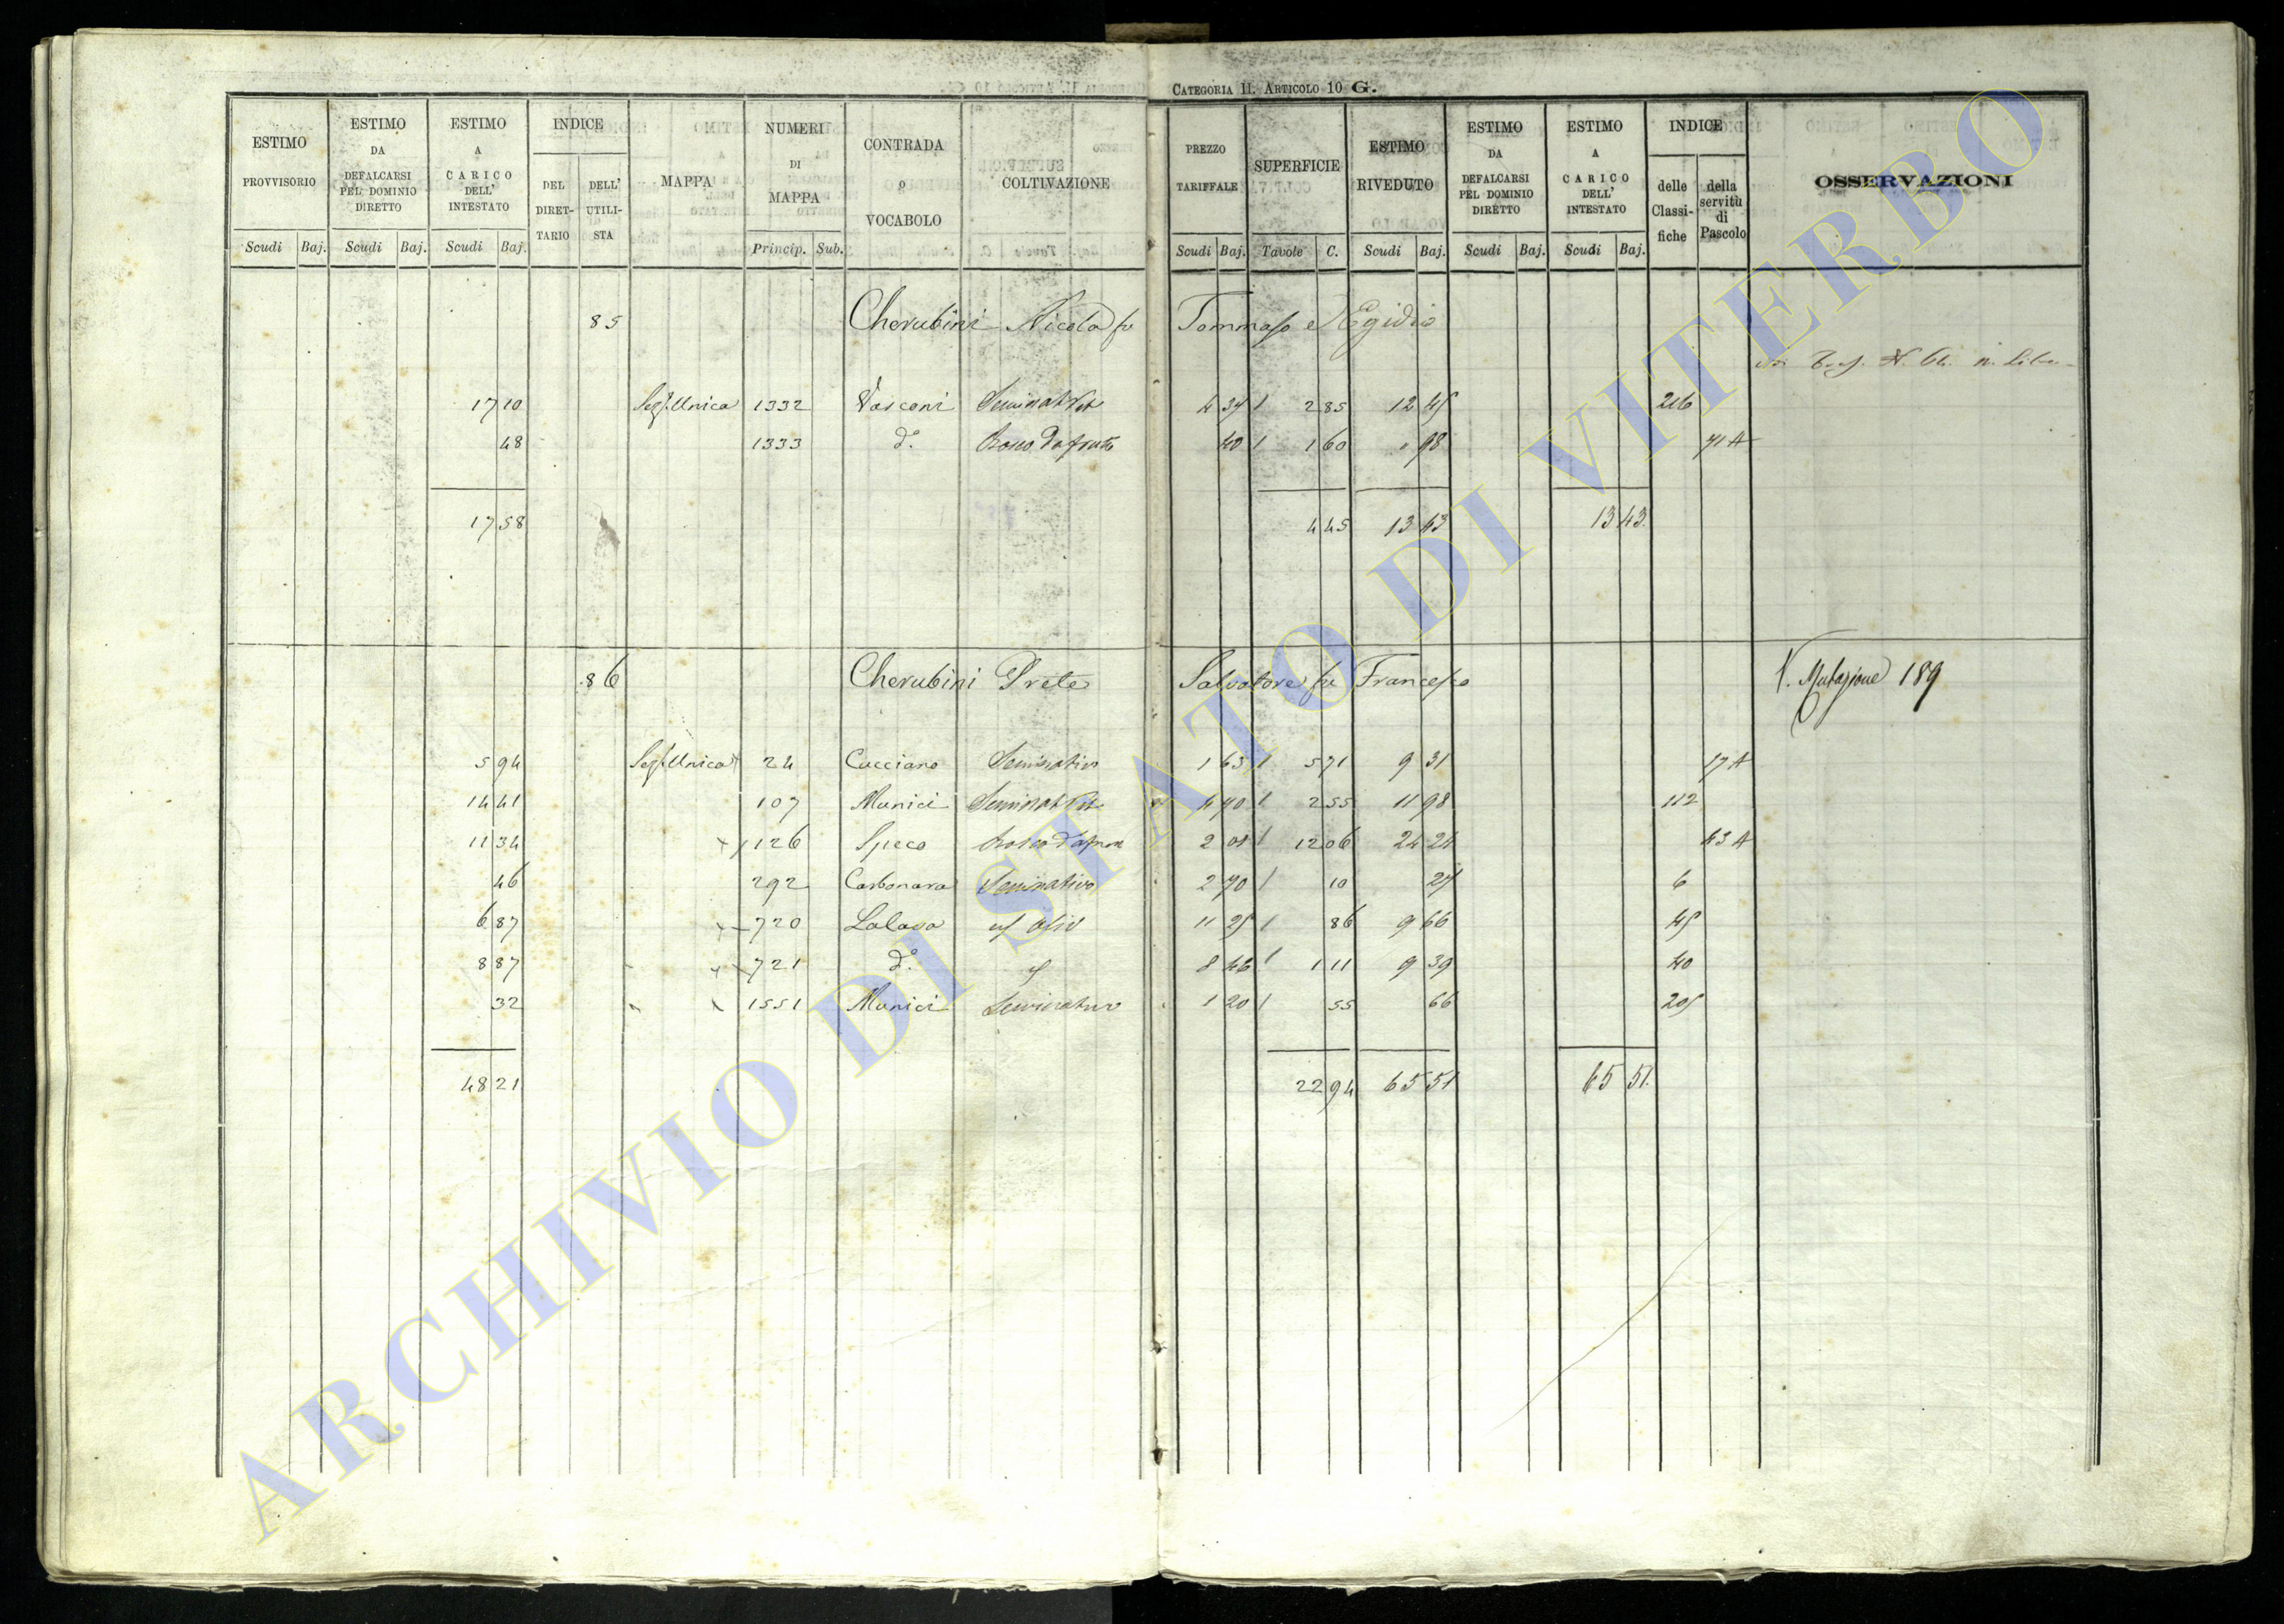 CATEGORIA II. ARTICOLO 10 G.
ESTIMO PROVVISORIO Scudi Baj.
ESTIMO DA DEFALCARSI PEL DOMINIO DIRETTO Scudi Baj.
ESTIMO A CARICO DELL' INTESTATO Scudi Baj.
INDICE DEL DIRET-TARIO DELL' UTILI-STA
MAPPA
NUMERI DI MAPPA Princip. Sub.
CONTRADA o VOCABOLO
COLTIVAZIONE
PREZZO TARIFFALE Scudi Baj.
SUPERFICIE Tavole C.
ESTIMO RIVEDUTO Scudi Baj.
ESTIMO DA DEFALCARSI PEL DOMINIO DIRETTO Scudi Baj.
ESTIMO A CARICO DELL' INTESTATO Scudi Baj.
INDICE delle Classi-fiche della servitù di Pascolo
OSSERVAZIONI
85 Cherubini Nicola fu Tommaso e Egidio
17 10 Sez. Unica 1332 Vasconi Seminat Vit 2 85 12 45 216
48 1333 d.° Bosco da frutto 40 1 60 98 71 A
17 58 4 45 13 43 13 43
86 Cherubini Prete Salvatore fu Francesco V. Mutazione 189
5 94 Sez. Unica 24 Cucciano Seminativo 1 63 5 71 9 31 17 A
14 41 107 Munici Seminat Vit 4 70 2 55 11 98 112
11 34 126 Speco Bosco da frut 2 01 12 06 24 24 43 A
46 292 Carbonara Seminativo 2 70 10 27 6
6 87 720 Lalava oliv 11 25 86 9 66 45
8 87 721 d.° 8 46 1 11 9 39 40
32 1551 Munici Seminativo 1 20 55 66 205
48 21 22 94 65 51 65 51
ARCHIVIO DI STATO DI VITERBO